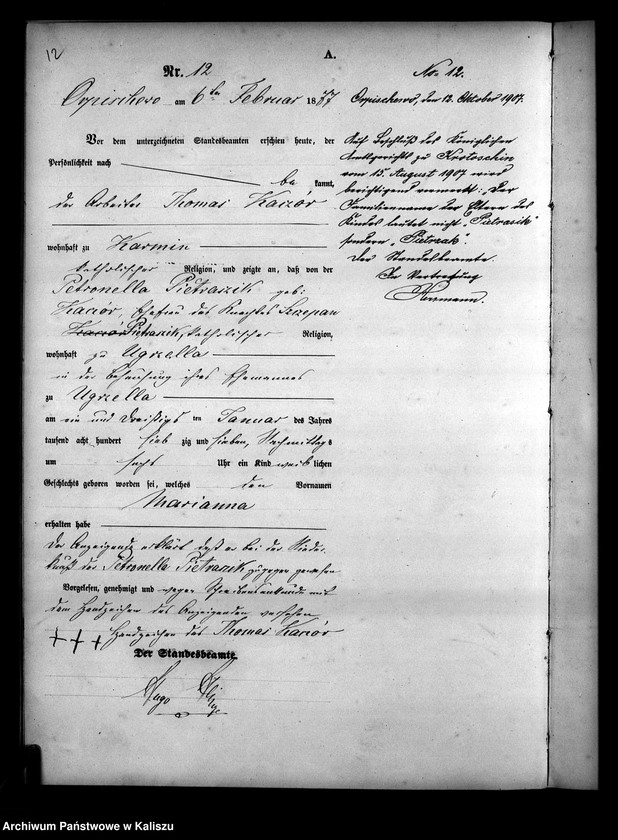 12
A.
Nr. 12
Orpischewo am 6ten Februar 1877
Vor dem unterzeichneten Standesbeamten erschien heute, der
Persönlichkeit nach
be kannt,
der Arbeiter Thomas Kaczor
wohnhaft zu Karmin
katholischer Religion, und zeigte an, daß von der
Petronella Pietrazik geb:
Kaczór, Ehefrau des Knechtes Szczepan
Kaczór Pietrazik, katholischer Religion,
wohnhaft zu Ugrzella
in der Behausung ihres Ehemannes
zu Ugrzella
am ein und dreißigsten Januar des Jahres
tausend acht hundert sieb zig und sieben, Nachmittags
um sechs Uhr ein Kind weiblichen
Geschlechts geboren worden sei, welches den Vornamen
Marianna
erhalten habe
Der Anzeigende erklärt daß er bei der Nieder
kunft der Petronella Pietrazik zugegen gewesen
Vorgelesen, genehmigt und wegen Schreibensunkunde mit
dem Handzeichen des Anzeigenden versehen
+++ Handzeichen des Thomas Kaczór
Der Standesbeamte.
Hugo
No. 12.
Orpischewo, den 12. Oktober 1907.
Auf Beschluß des Königlichen
Amtsgerichts zu Krotoschin
vom 15. August 1907 wird
berichtigend vermerkt: Der
Familienname der Eltern des
Kindes lautet nicht "Pietrasik"
sondern "Pietrzak".
Der Standesbeamte.
In Vertretung
Hermann.
Archiwum Państwowe w Kaliszu